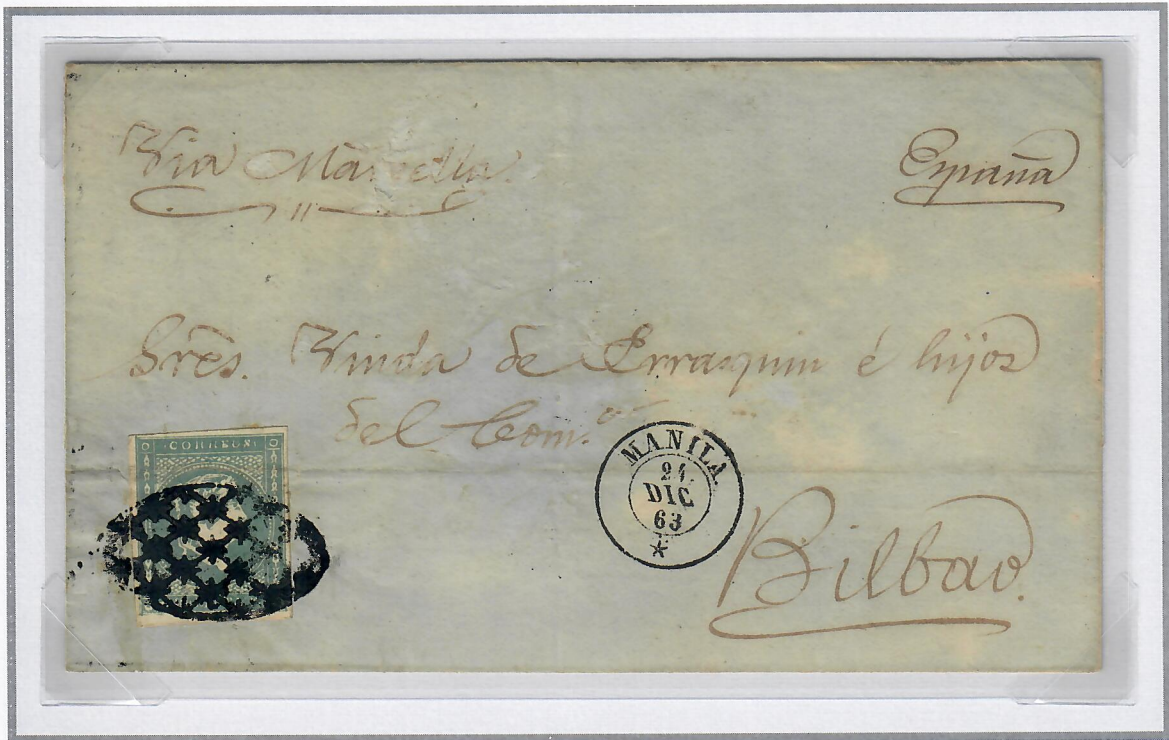 Via Marsella
España
Sres. Viuda de Errazquin é hijos
del Com.º
Bilbao.
CORREOS
MANILA
21
DIC
63